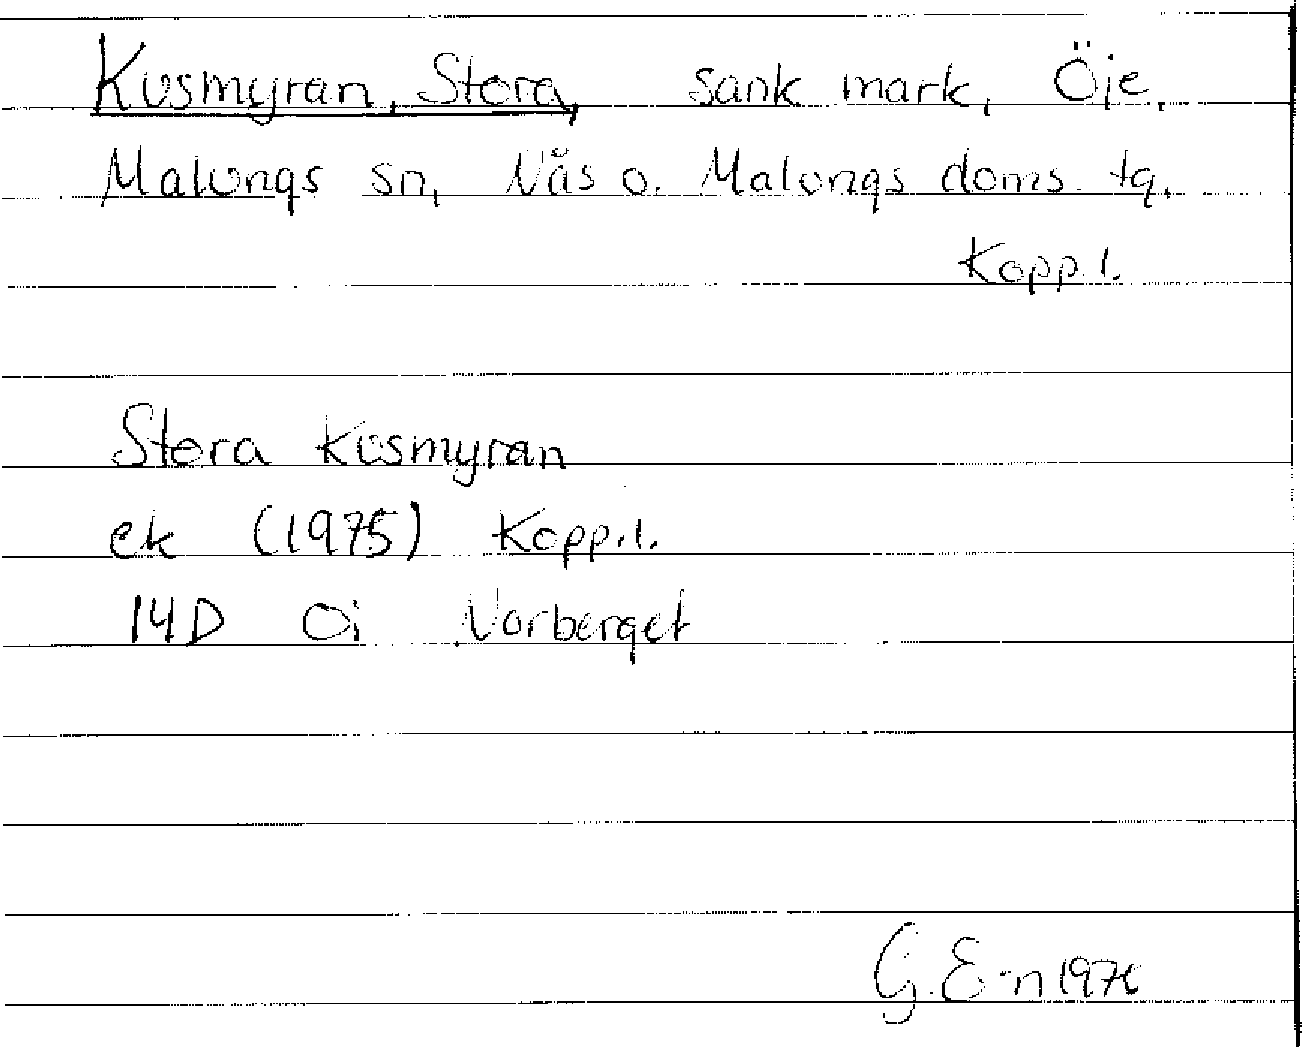 Kusmyran, Stora, sank mark, Öje,
Malungs sn, Nås o. Malungs doms. tg.
Kopp. l.
Stora Kusmyran
ek (1975) Kopp. l.
14D 0i Vorberget
G. E-n 1976